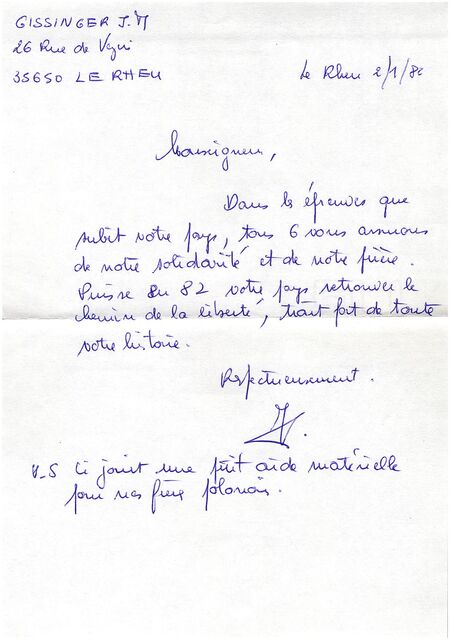 GISSINGER J.M
26 Rue de Vezin
35650 LE RHEU
Le Rheu 2/1/82
Monseigneur,
Dans les épreuves que
subit votre pays, tous 6 vous assurons
de notre solidarité et de notre prière.
Puisse en 82 votre pays retrouver le
chemin de la liberté, trait fort de toute
votre histoire.
Respectueusement.
P.S Ci joint une petit aide matérielle
pour nos frères polonais.